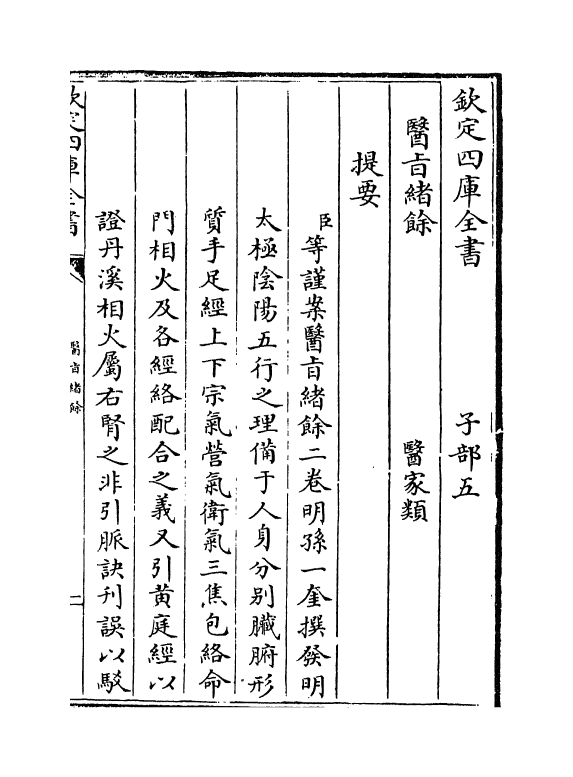 欽定四庫全書　子部五
醫旨緒餘　醫家類
提要
臣等謹案醫旨緒餘二卷明孫一奎撰發明
太極陰陽五行之理備于人身分別臟腑形
質手足經上下宗氣營氣衛氣三焦包絡命
門相火及各經絡配合之義又引黄庭經以
證丹溪相火屬右腎之非引脈訣刊誤以駁
欽定四庫全書
醫旨緒餘
二